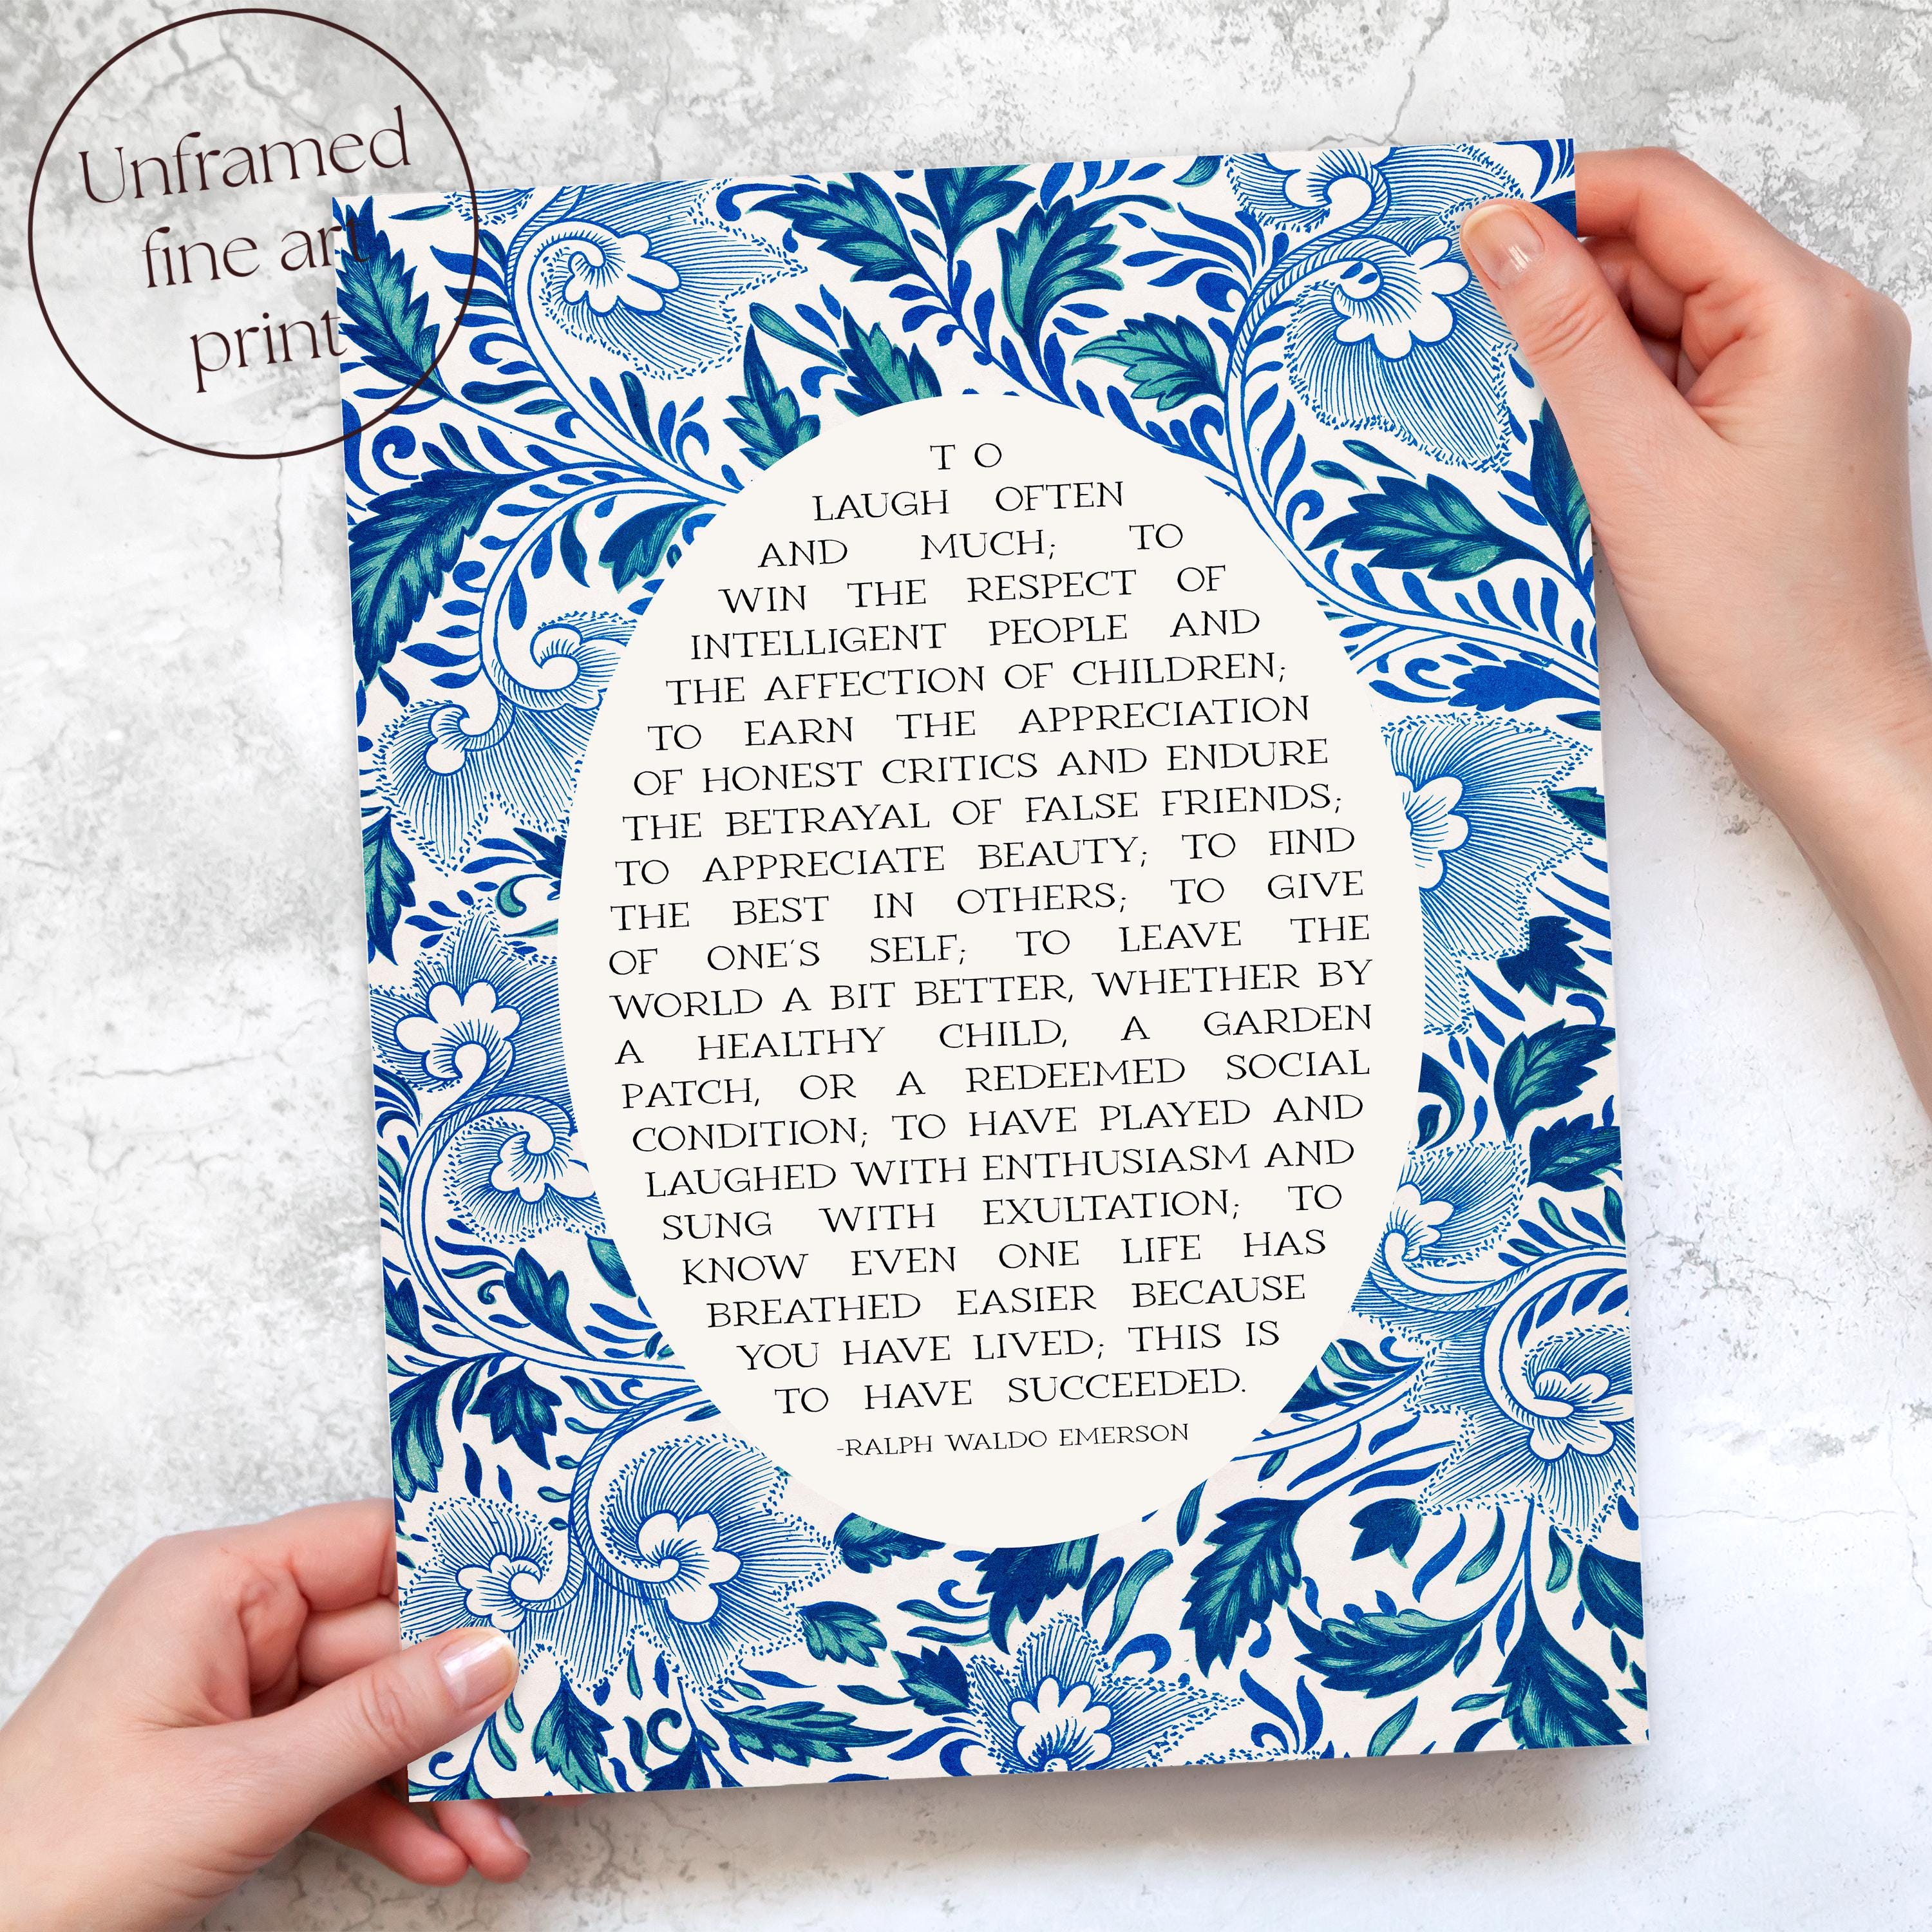 Unframed
fine art
print
TO
LAUGH OFTEN
AND MUCH; TO
WIN THE RESPECT OF
INTELLIGENT PEOPLE AND
THE AFFECTION OF CHILDREN;
TO EARN THE APPRECIATION
OF HONEST CRITICS AND ENDURE
THE BETRAYAL OF FALSE FRIENDS;
TO APPRECIATE BEAUTY; TO FIND
THE BEST IN OTHERS; TO GIVE
OF ONE'S SELF; TO LEAVE THE
WORLD A BIT BETTER, WHETHER BY
A HEALTHY CHILD, A GARDEN
PATCH, OR A REDEEMED SOCIAL
CONDITION; TO HAVE PLAYED AND
LAUGHED WITH ENTHUSIASM AND
SUNG WITH EXULTATION; TO
KNOW EVEN ONE LIFE HAS
BREATHED EASIER BECAUSE
YOU HAVE LIVED; THIS IS
TO HAVE SUCCEEDED.
-RALPH WALDO EMERSON